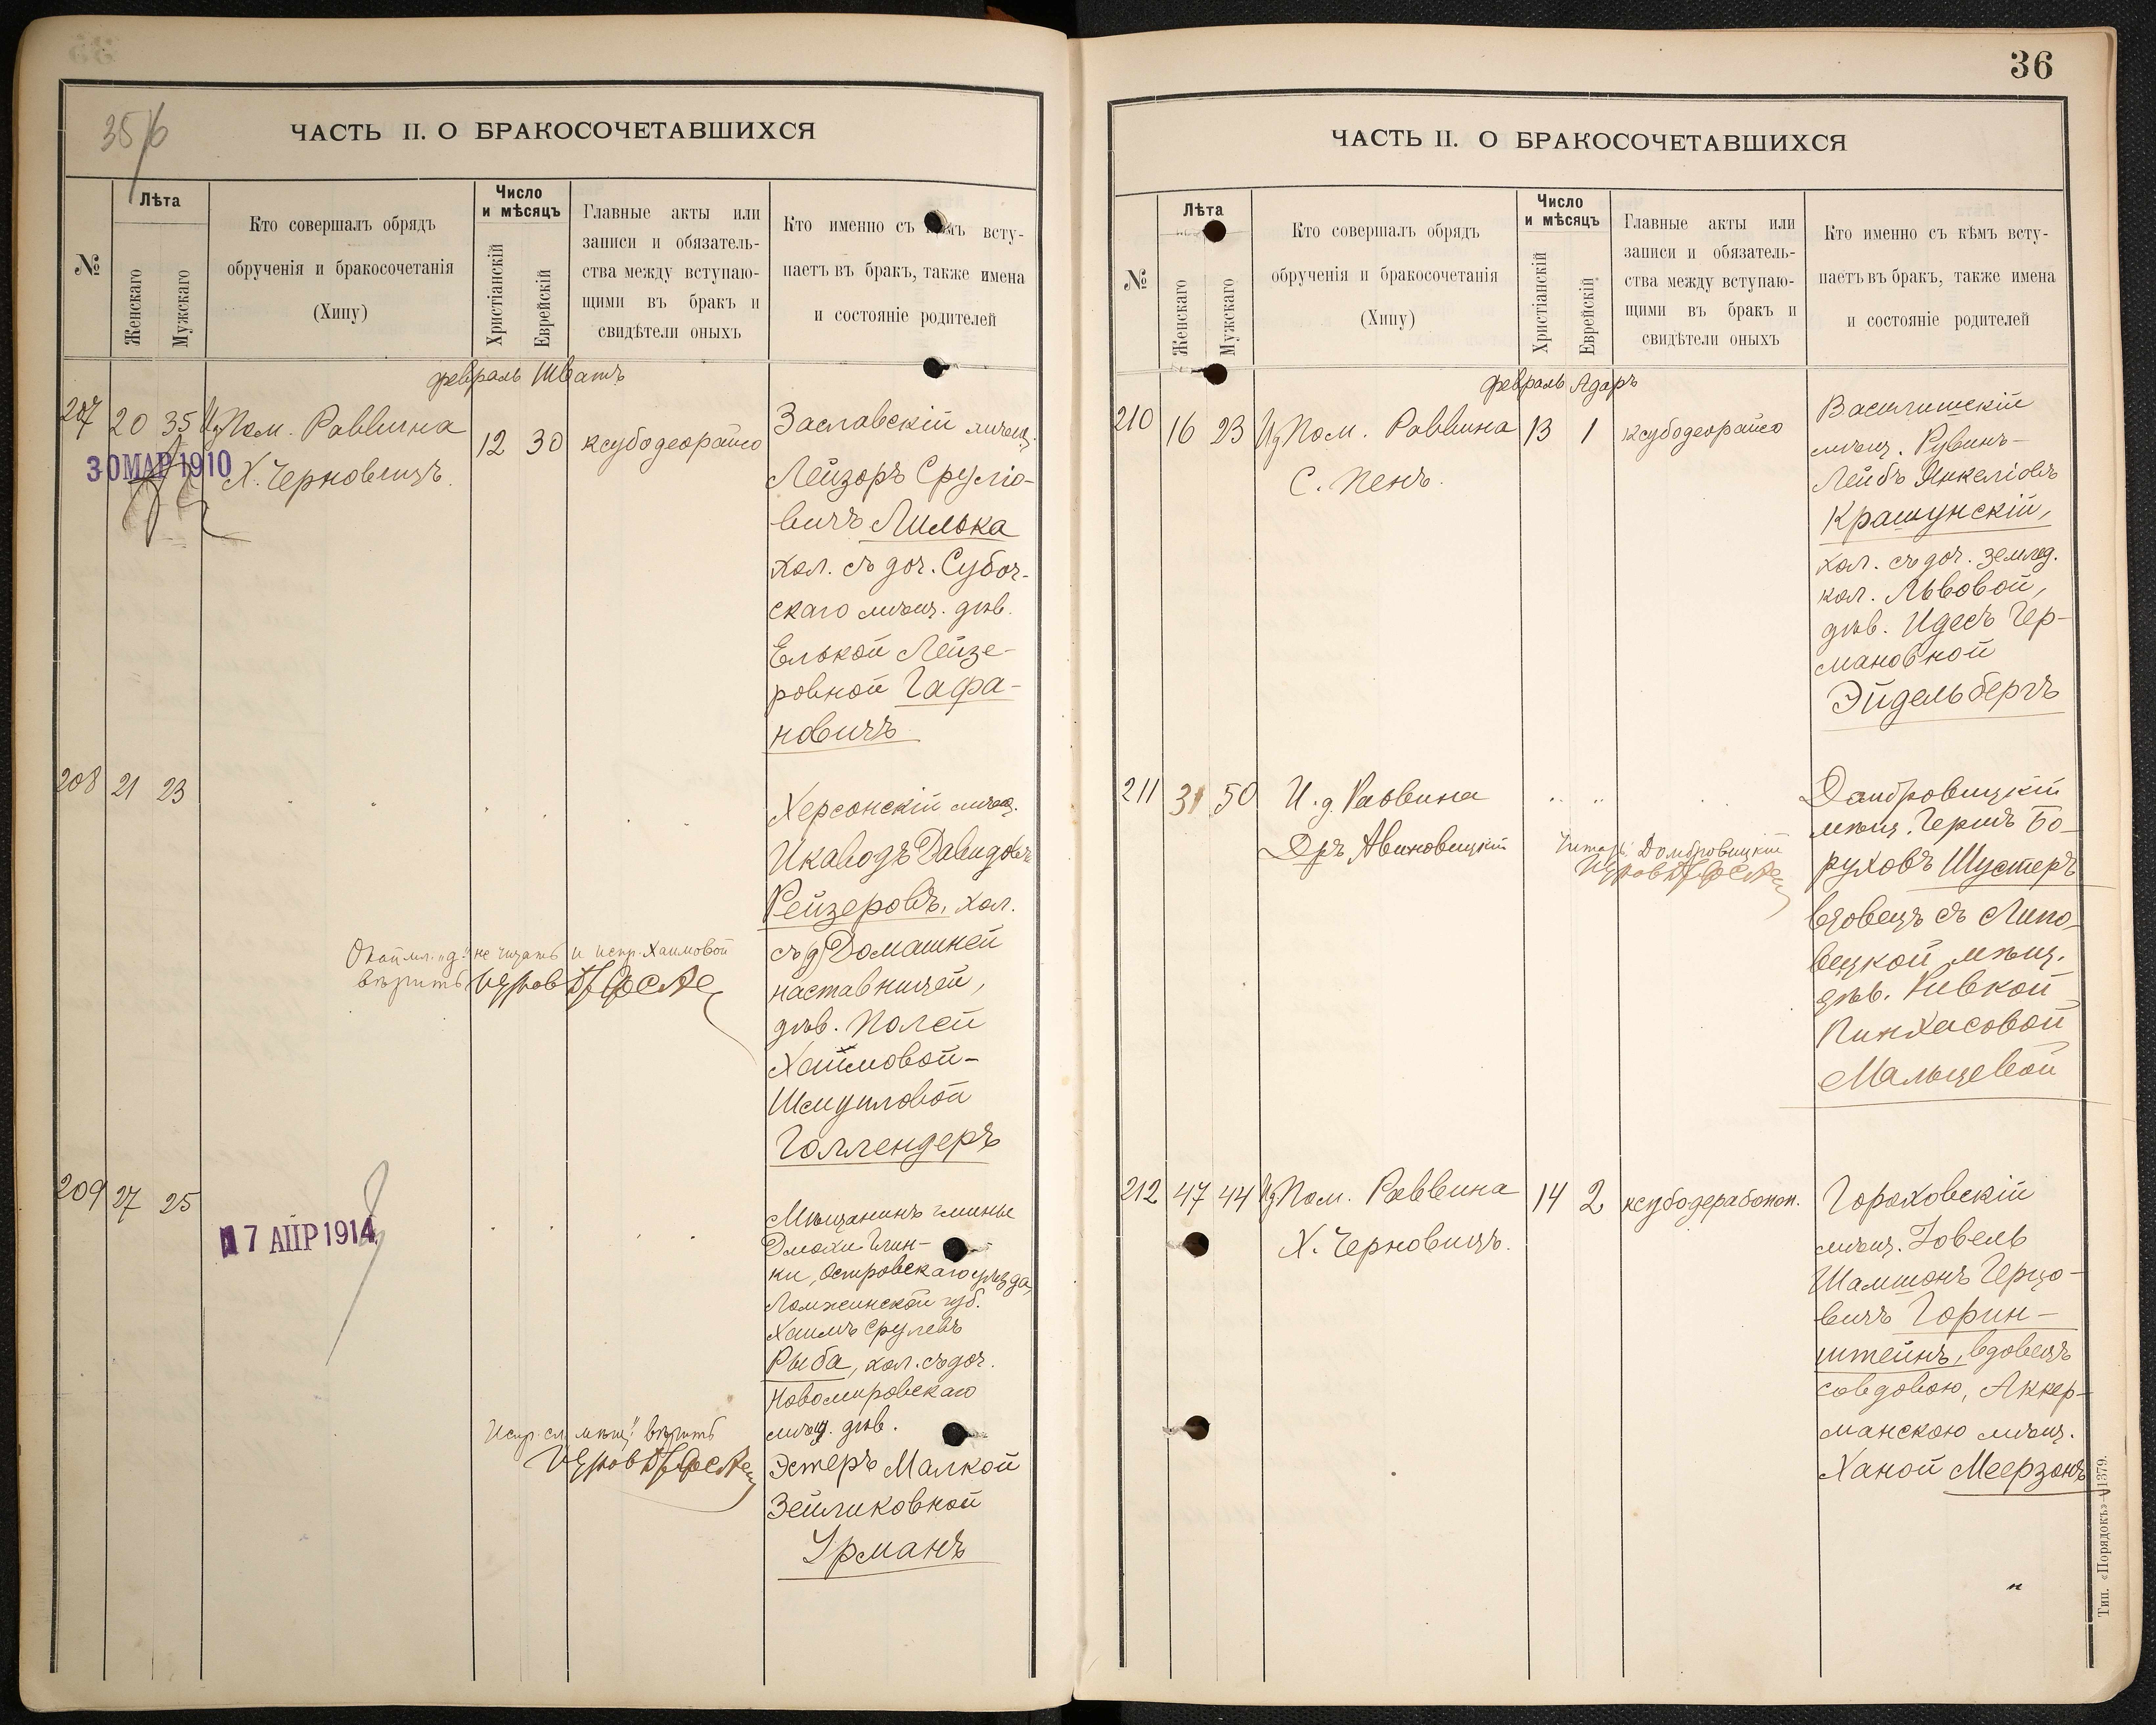 35/6
ЧАСТЬ II. О БРАКОСОЧЕТАВШИХСЯ
№
Лѣта
Женскаго
Мужскаго
Кто совершалъ обрядъ
обрученія и бракосочетанія
(Хипу)
Число
и мѣсяцъ
Христіанскій
Еврейскій
Главные акты или
записи и обязатель-
ства между вступаю-
щими въ бракъ и
свидѣтели оныхъ
Кто именно съ всту-
паетъ въ бракъ, также имена
и состояніе родителей
февраль Шватъ
207 20 35 Пом. Раввина 12 30 ксубодеорайсо
30 МАР 1910
Х. Черновицъ.
Заславскій мѣщ.
Лейзоръ Срулiо-
вичъ Лилька
хол. съ доч. Субоч-
скаго мѣщ. дѣв.
Елькой Лейзе-
ровной Гафа-
новичъ
208 21 23
Херсонскій мѣщ.
Икаводъ Давидовъ
Рейзеровъ, хол.
съ д Домашней
наставницей,
дѣв. Полей
Хаймовой-
Шмуиловой
Голлендеръ
"д." не читать и испр. Хаимовой
вѣрить
209 27 25
17 АПР 1914
Мѣщанинъ гмины
Дмохи Глин-
ки, Островскаго уѣзда,
Ломжинской губ.
Хаимъ Срулевъ
Рыба, хол. съ доч.
Новомировскаго
мѣщ. дѣв.
Эстеръ Малкой
Зейликовной
Урманъ
Испр. сл. мѣщ." вѣрить
36
ЧАСТЬ II. О БРАКОСОЧЕТАВШИХСЯ
№
Лѣта
Женскаго
Мужскаго
Кто совершалъ обрядъ
обрученія и бракосочетанія
(Хипу)
Число
и мѣсяцъ
Христіанскій
Еврейскій
Главные акты или
записи и обязатель-
ства между вступаю-
щими въ бракъ и
свидѣтели оныхъ
Кто именно съ кѣмъ всту-
паетъ въ бракъ, также имена
и состояніе родителей
февраль Адаръ
210 16 23 Пом. Раввина 13 1 ксубодеорайсо
С. Пенъ.
Василишскій
мѣщ. Рувинъ-
Лейбъ Янкеліовъ
Крашунскій,
хол. съ доч. землед.
кол. Львовой,
дѣв. Идесъ Гер-
мановной
Эйдельбергъ
211 31 50 И. д. Раввина
Дръ Авиновицкій
Читать: Домбровицкій
Домбровицкій
мѣщ. Гершъ Бо-
руховъ Шустеръ
вдовецъ съ Липо-
вецкой мѣщ.
дѣв. Ривкой
Пинхасовой
Мальцевой
212 47 44 Пом. Раввина 14 2 ксубодерабонон.
Х. Черновицъ.
Гороховскій
мѣщ. Іовель
Шамшонъ Герцо-
вичъ Горин-
штейнъ, вдовецъ
со вдовою, Аккер-
манскою мѣщ.
Ханой Меерзонъ
Тип. «Порядокъ»—1379.